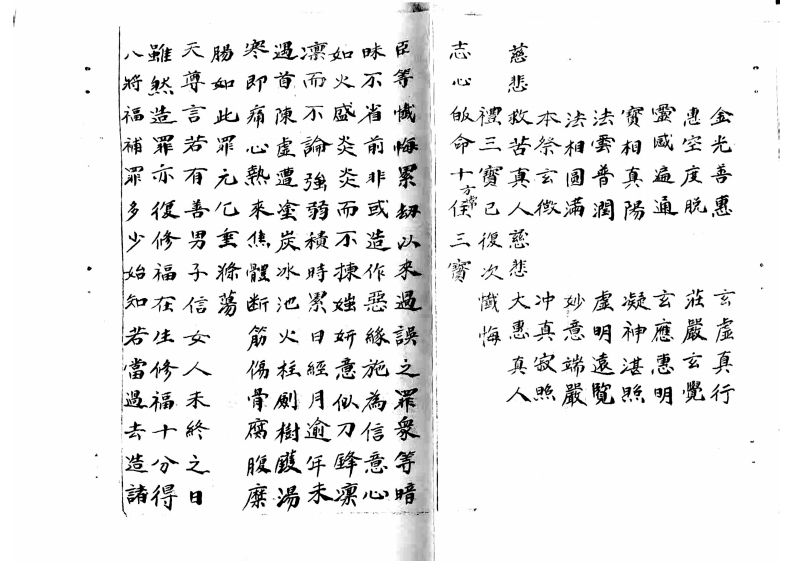 金光善惠　玄虛真行
惠空度脫　莊嚴玄覺
靈感遍通　玄應惠明
寶相真陽　凝神湛照
法雲普潤　虛明遠覽
法相圓滿　妙意端嚴
本祭玄微　冲真寂照
慈悲救苦真人慈悲大惠真人
禮三寶已復次懺悔
志心皈命十方常住三寶
臣等懺悔累劫以來過誤之罪衆等暗
昧不省前非或造作惡緣施為信意心
如火盛炎炎而不揀媸妍意似刀鋒凛
凛而不論強弱積時累日經月逾年未
遇首陳虛遭塗炭冰池火柱劍樹鑊湯
寒即痛心熱來焦體斷筋傷骨腐腹糜
腸如此罪元乞垂滌蕩
天尊言若有善男子信女人未終之日
雖然造罪亦復修福在生修福十分得
八將福補罪多少始知若當過去造諸